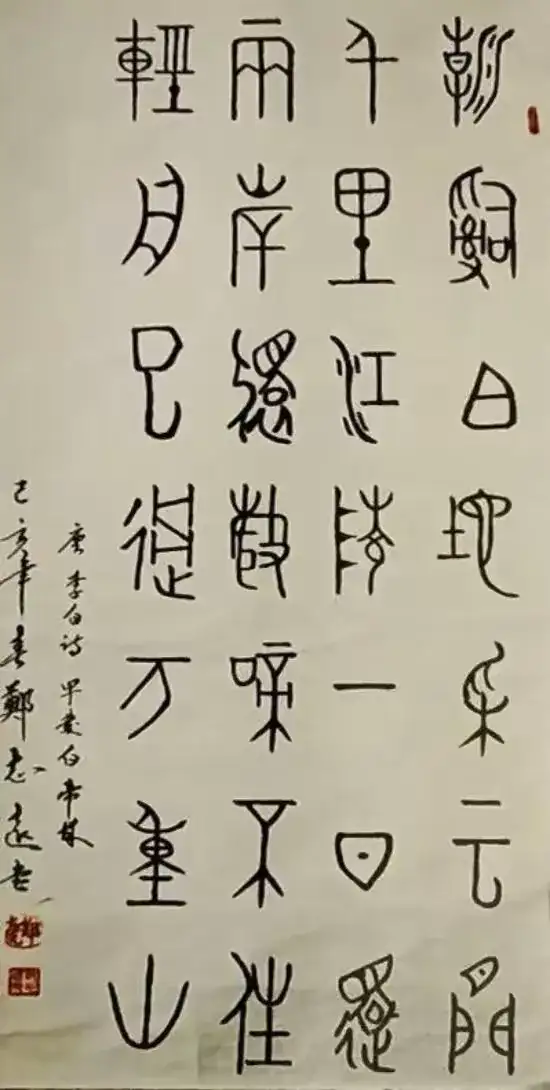 朝辭白地采云間
千里江陵一日還
兩岸猿聲啼不住
輕舟已過万重山
唐李白诗早發白帝城
己亥年春鄭志遠書